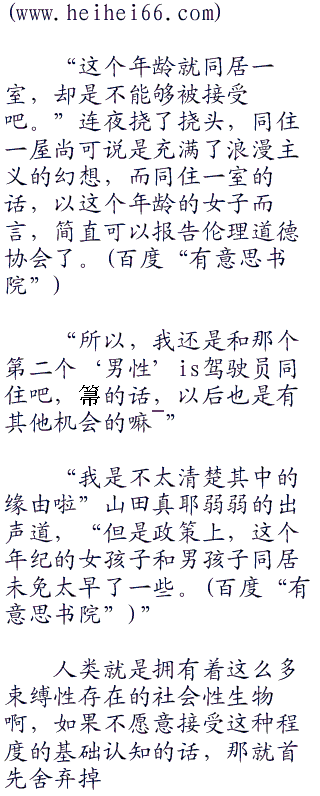 (www.heihei66.com)
“这个年龄就同居一
室，却是不能够被接受
吧。”连夜挠了挠头，同住
一屋尚可说是充满了浪漫主
义的幻想，而同住一室的
话，以这个年龄的女子而
言，简直可以报告伦理道德
协会了。(百度“有意思书
院”)
“所以，我还是和那个
第二个‘男性’is驾驶员同
住吧，箒的话，以后也是有
其他机会的嘛¯”
“我是不太清楚其中的
缘由啦”山田真耶弱弱的出
声道，“但是政策上，这个
年纪的女孩子和男孩子同居
未免太早了一些。(百度“有
意思书院”)”
人类就是拥有着这么多
束缚性存在的社会性生物
啊，如果不愿意接受这种程
度的基础认知的话，那就首
先舍弃掉